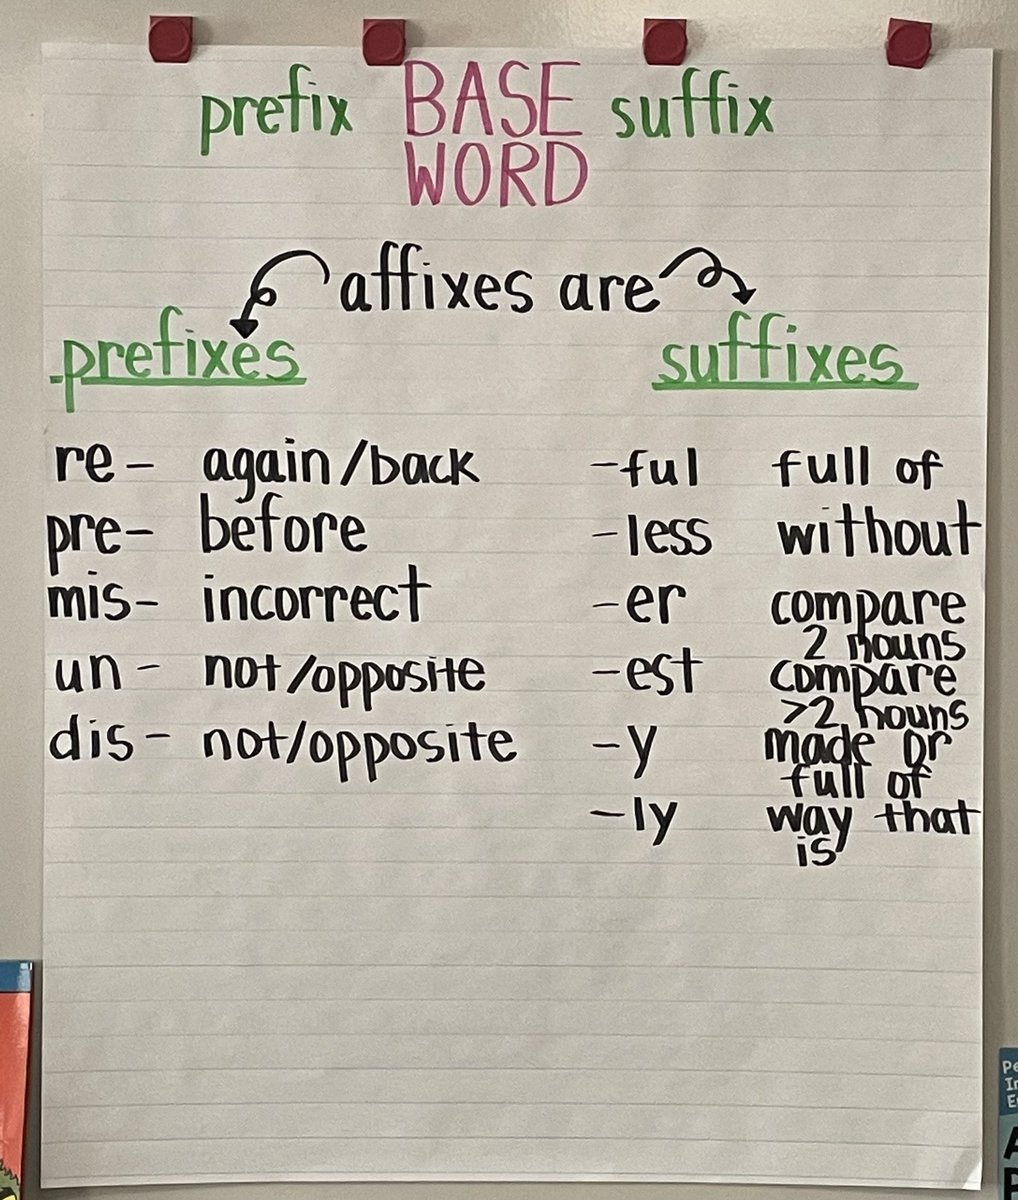 prefix BASE suffix
WORD
affixes are
prefixes suffixes
re- again/back -ful full of
pre- before -less without
mis- incorrect -er compare
2 nouns
un- not/opposite -est compare
>2 nouns
dis- not/opposite -y made or
full of
-ly way that
is